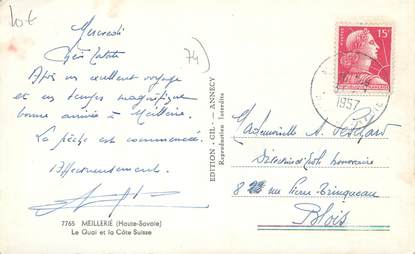 lot
74
Mercredi
Après un excellent voyage
et un temps magnifique
bonne arrivée à Meillerie.
La pêche est commencée.
Affectueusement.
7765 MEILLERIE (Haute-Savoie)
Le Quai et la Côte Suisse
EDITION - GIL - ANNECY
Reproduction Interdite
15F
1957
Mademoiselle A.
Directrice d'École honoraire
8 rue Pierre
Blois